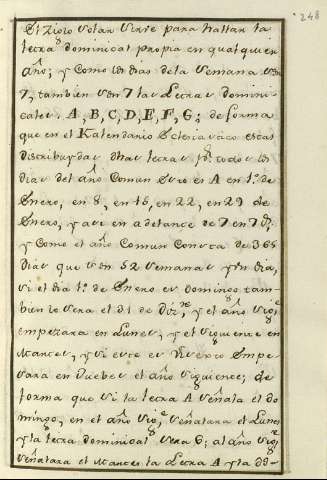 248
El Ziclo Solar Sirve para hallar la
Letra dominical propia en qualquier
año; y como los dias de la Semana son
7, tambien son 7 las Letras domini
cales, A, B, C, D, E, F, G; de forma
que en el Kalendario Eclesiastico estas
distribuydas dhas letras pr. todos los
dias del año Comun Esto es A en 1.º de
Enero, en 8, en 15, en 22, en 29 de
Enero, y assi en adelante de 7 en 7 ds.
y Como el año Comun Consta de 365
Dias que son 52 Semanas y un dia,
si el dia 1.º de Enero es Domingo tam-
bien lo sera el 31 de Dizre. y el año sigte.
empezara en Lunes, y el siguiente en
Martes, y si este es Visiesto Empe
zara en Jueves el año siguiente; de
forma que si la letra A señala el do
mingo, en el año sigte. señalara el Lunes
y la letra dominical sera G; al año sigte.
señalara el Martes la Letra A y la do-